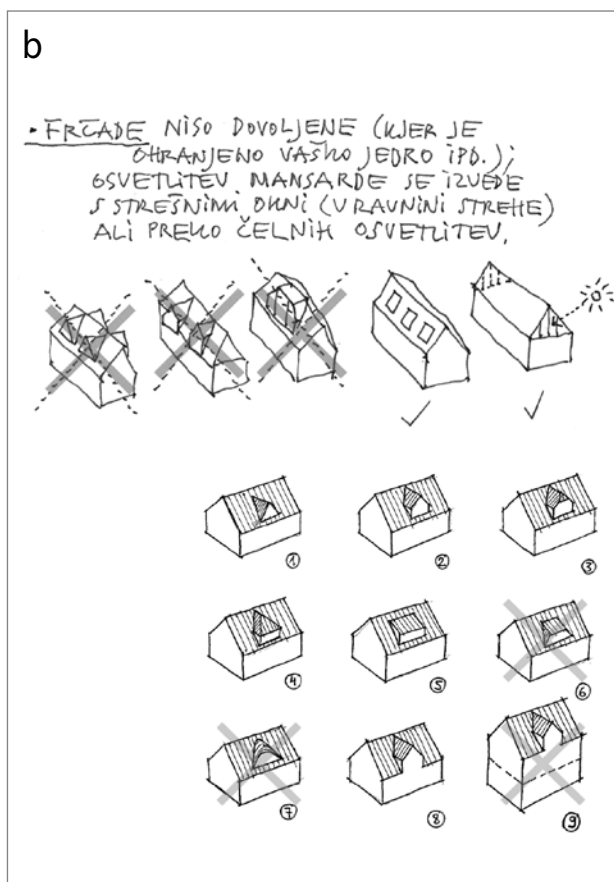 b
• FRČADE NISO DOVOLJENE (KJER JE
OHRANJENO VAŠKO JEDRO IPD.);
OSVETLITEV MANSARDE SE IZVEDE
S STREŠNIMI OKNI (V RAVNINI STREHE)
ALI PREKO ČELNIH OSVETLITEV.
1 2 3
4 5 6
7 8 9